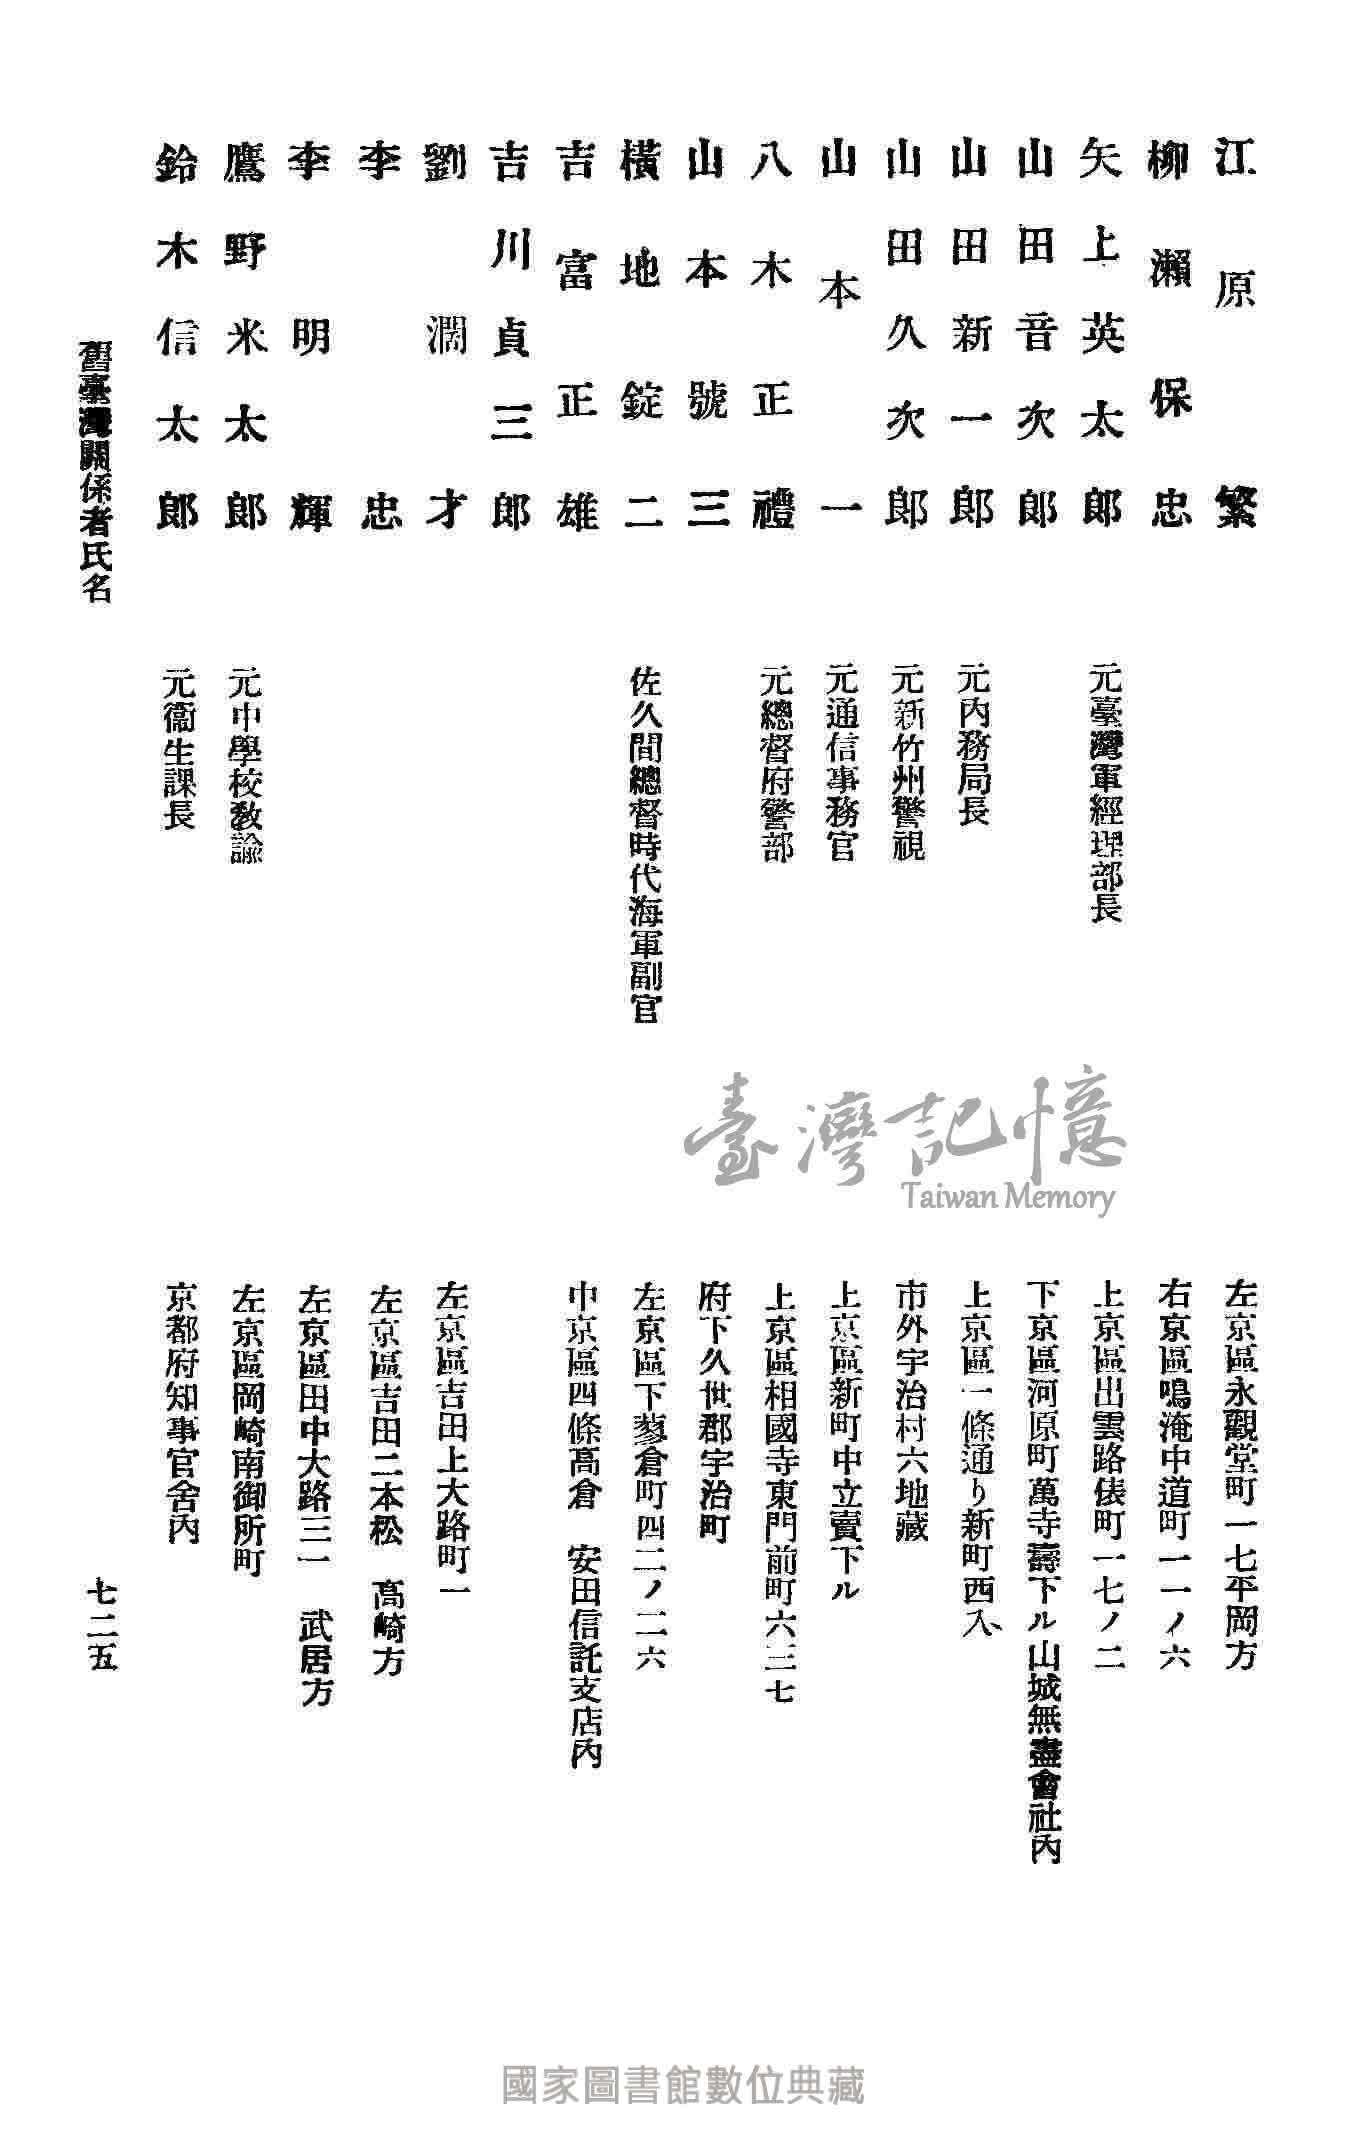 江原繁　左京區永觀堂町一七平岡方
柳瀨保忠　右京區鳴滝中道町一一ノ六
矢上英太郎　元臺灣軍經理部長　上京區出雲路俵町一七ノ二
山田音次郎　下京區河原町萬寺壽下ル山城無盡會社內
山田新一郎　元內務局長　上京區一條通り新町西入
山田久次郎　元新竹州警視　市外宇治村六地藏
山本一　元通信事務官　上京區新町中立賣下ル
八木正禮　元總督府警部　上京區相國寺東門前町六三七
山本號三　府下久世郡宇治町
横地錠二　佐久間總督時代海軍副官　左京區下蓼倉町四二ノ二六
吉富正雄　中京區四條高倉　安田信託支店內
吉川貞三郎
劉濶才　左京區吉田上大路町一
李忠　左京區吉田二本松　高崎方
李明輝　左京區田中大路三一　武居方
鷹野米太郎　元中學校教諭　左京區岡崎南御所町
鈴木信太郎　元衞生課長　京都府知事官舍內
舊臺灣關係者氏名
七二五
臺灣記憶
Taiwan Memory
國家圖書館數位典藏